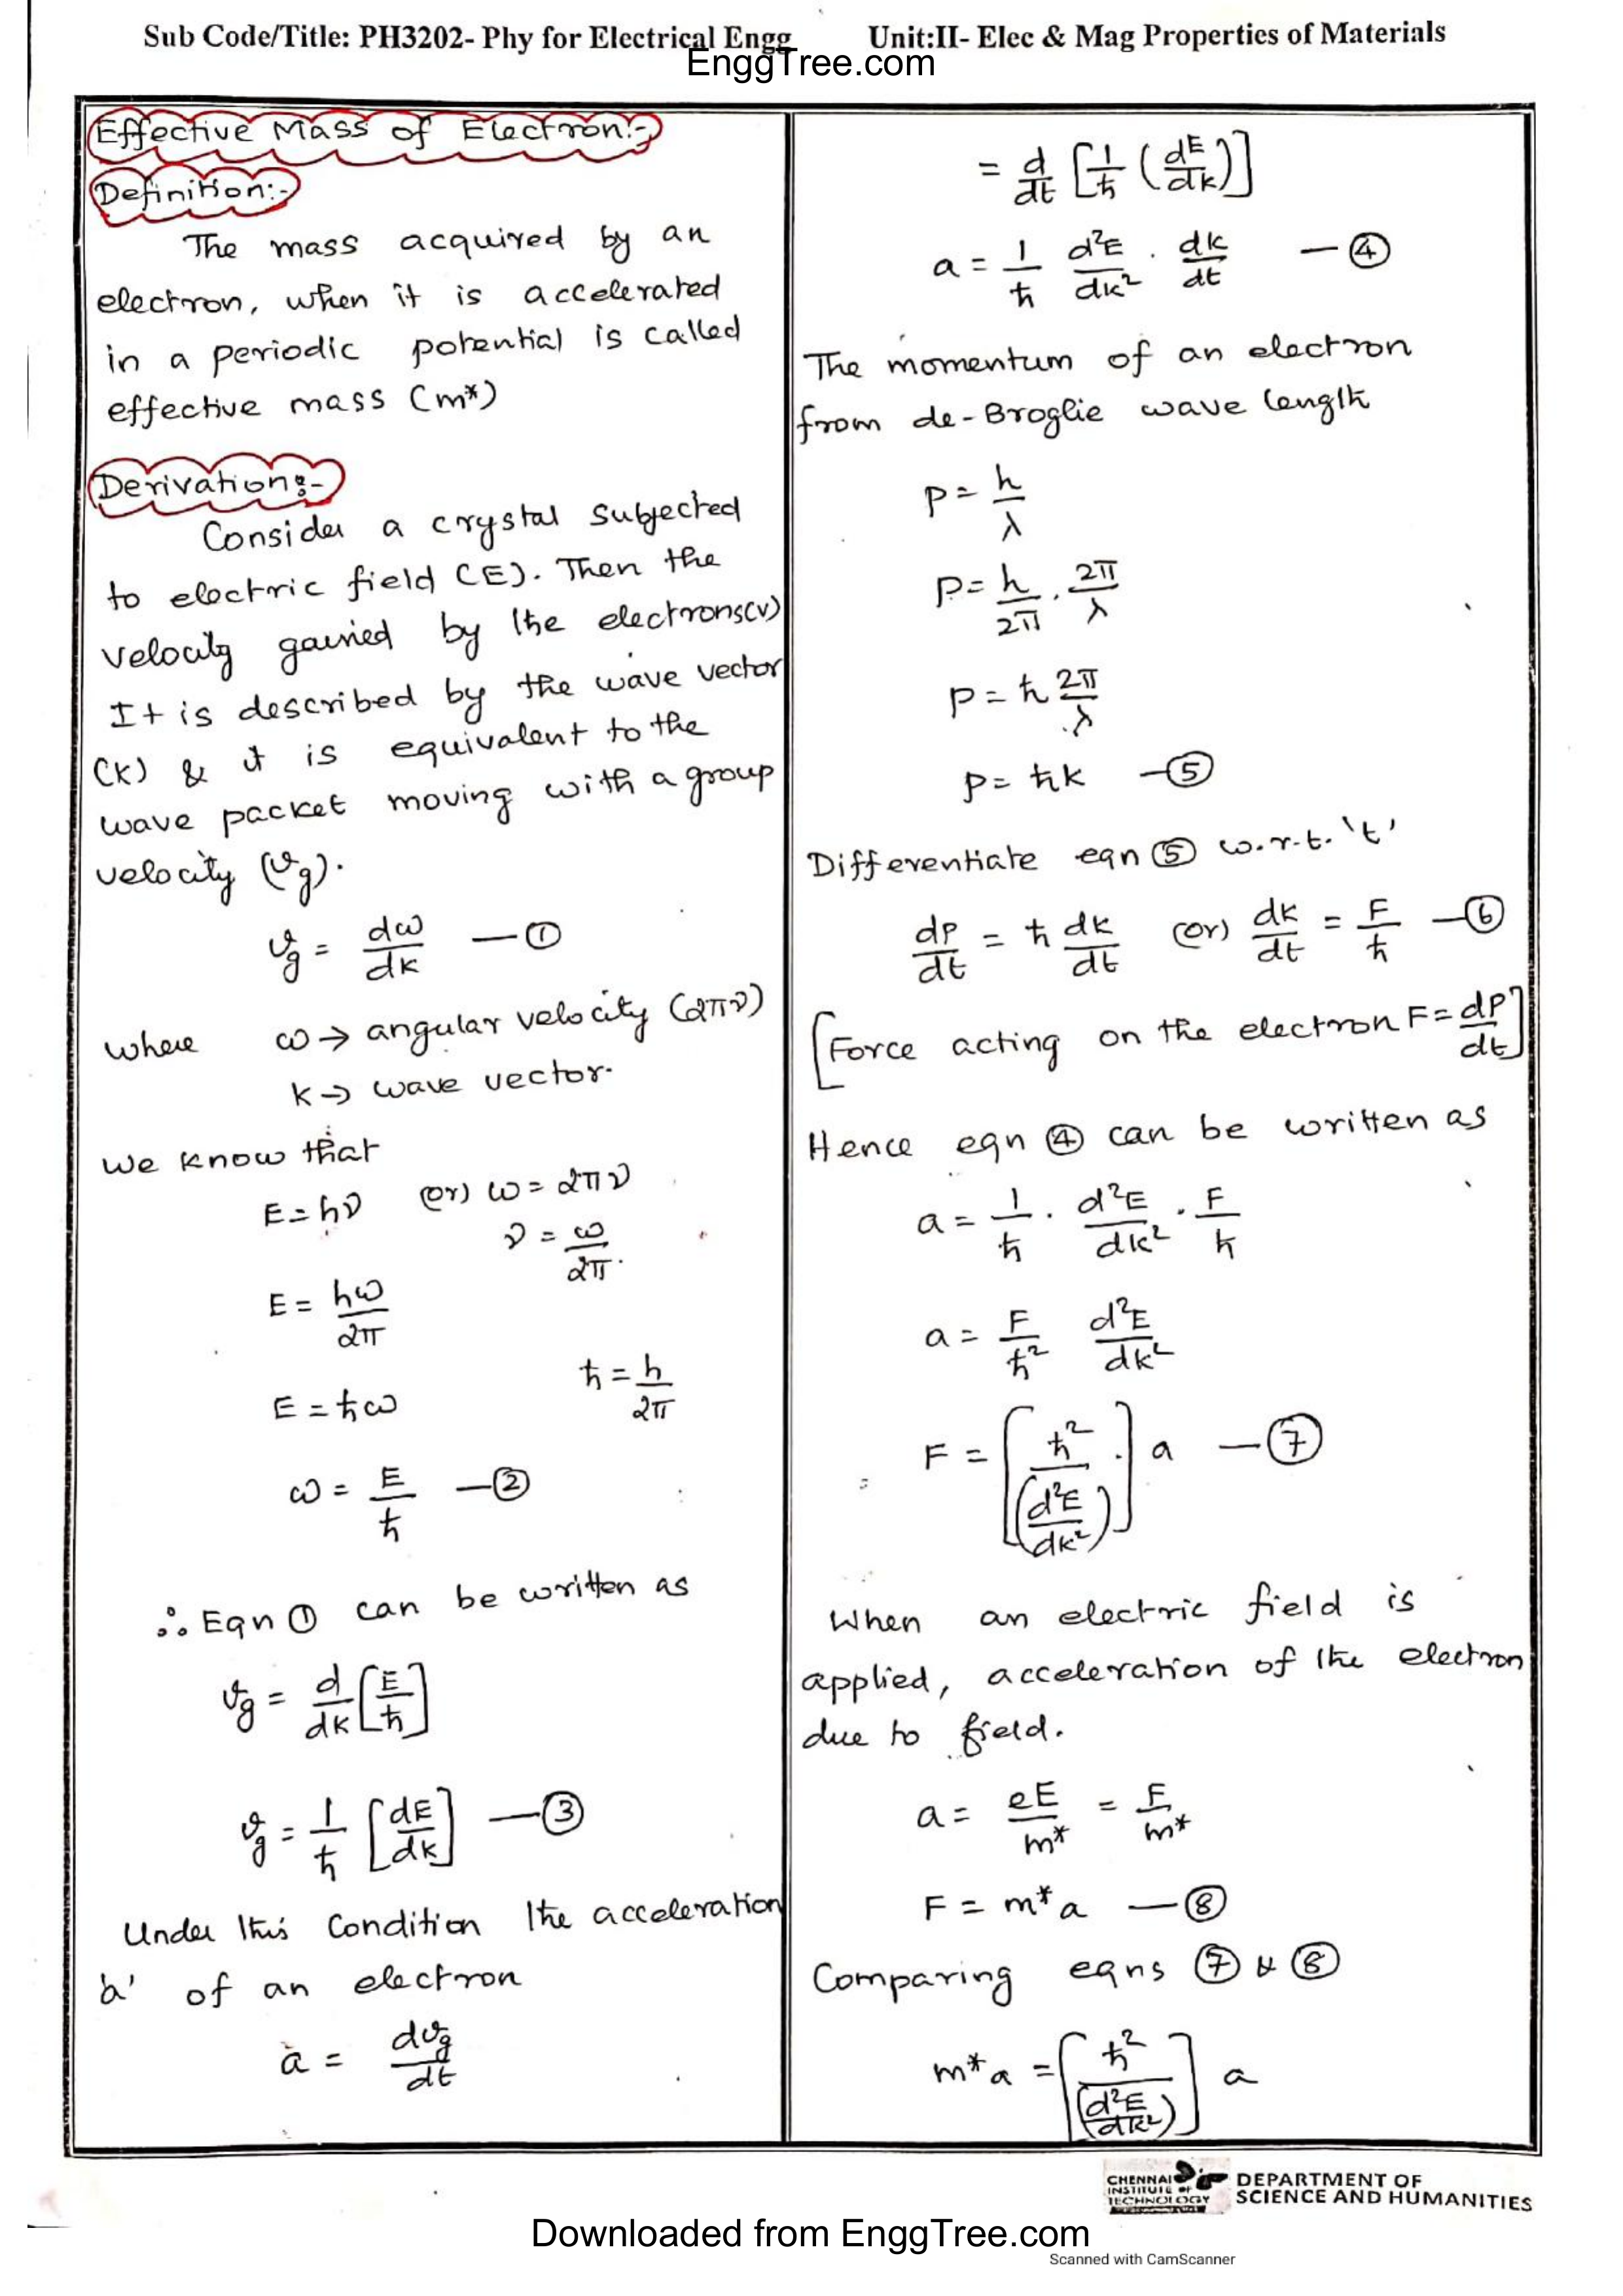 Sub Code/Title: PH3202- Phy for Electrical Engg Unit:II- Elec & Mag Properties of Materials
EnggTree.com
Effective Mass of Electron:-
Definition:-
The mass acquired by an
electron, when it is accelerated
in a periodic potential is called
effective mass (m*)
Derivation:-
Consider a crystal subjected
to electric field (E). Then the
velocity gained by the electrons(v)
It is described by the wave vector
(k) & it is equivalent to the
wave packet moving with a group
velocity (vg).
vg = dω/dk —①
where ω → angular velocity (2πν)
k → wave vector.
We know that
E = hν (or) ω = 2πν
ν = ω/2π.
E = hω/2π
ħ = h/2π
E = ħω
ω = E/ħ —②
∴ Eqn ① can be written as
vg = d/dk [E/ħ]
vg = 1/ħ [dE/dk] —③
Under this Condition the acceleration
'a' of an electron
a = dvg/dt
= d/dt [1/ħ (dE/dk)]
a = 1/ħ d²E/dk² . dk/dt —④
The momentum of an electron
from de-Broglie wave length
p = h/λ
p = h/2π . 2π/λ
p = ħ 2π/λ
p = ħk —⑤
Differentiate eqn ⑤ w.r.t. 't'
dp/dt = ħ dk/dt (or) dk/dt = F/ħ —⑥
[Force acting on the electron F = dp/dt]
Hence eqn ④ can be written as
a = 1/ħ . d²E/dk² . F/ħ
a = F/ħ² d²E/dk²
F = [ħ²/(d²E/dk²)] a —⑦
When an electric field is
applied, acceleration of the electron
due to field.
a = eE/m* = F/m*
F = m*a —⑧
Comparing eqns ⑦ & ⑧
m*a = [ħ²/(d²E/dk²)] a
CHENNAI
INSTITUTE OF
TECHNOLOGY
DEPARTMENT OF
SCIENCE AND HUMANITIES
Downloaded from EnggTree.com
Scanned with CamScanner